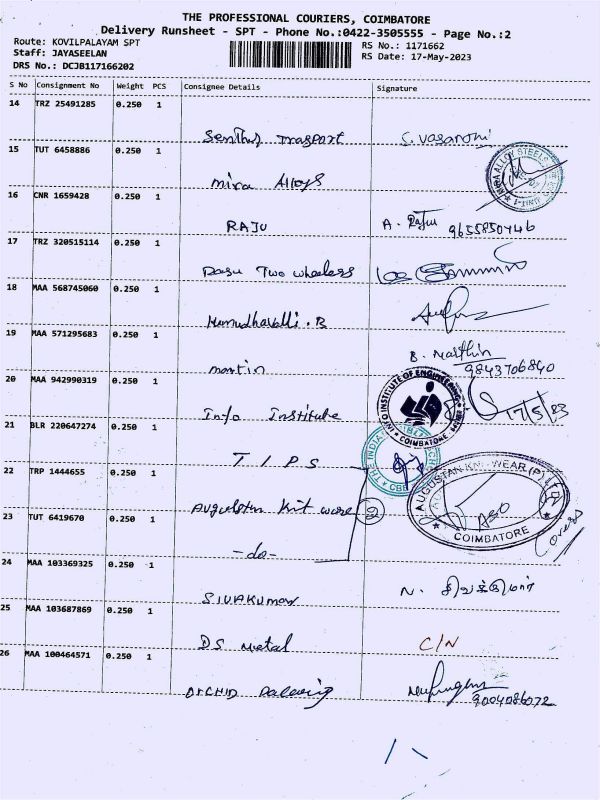 THE PROFESSIONAL COURIERS, COIMBATORE
Delivery Runsheet - SPT - Phone No.:0422-3505555 - Page No.:2
Route: KOVILPALAYAM SPT
Staff: JAYASEELAN
DRS No.: DCJB117166202
RS No.: 1171662
RS Date: 17-May-2023
S No Consignment No Weight PCS Consignee Details Signature
14 TRZ 25491285 0.250 1
Senthur Trasport
15 TUT 6458886 0.250 1
Mira Alloys
16 CNR 1659428 0.250 1
RAJU A. Raju 9655850446
17 TRZ 320515114 0.250 1
Two wheelers
18 MAA 568745060 0.250 1
Kumudhavalli.B
19 MAA 571295683 0.250 1
martin B. Marthin
9843706840
20 MAA 942990319 0.250 1
Info Institute 17/5/23
INFO INSTITUTE OF ENGINEERING
COIMBATORE
21 BLR 220647274 0.250 1
T I P S
22 TRP 1444655 0.250 1
Augusten knit ware 2
AUGUSTAN KNITWEAR (P) LTD
COIMBATORE
23 TUT 6419670 0.250 1
-do-
24 MAA 103369325 0.250 1
SIVAKUMAR N. சிவக்குமார்
25 MAA 103687869 0.250 1
DS metal C/N
26 MAA 100464571 0.250 1
ORCHID
9004086072